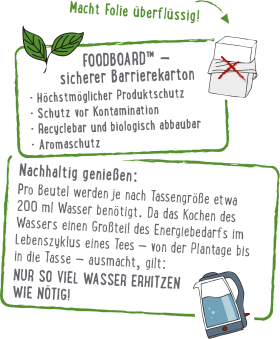 Macht Folie überflüssig!
FOODBOARD™ –
sicherer Barrierekarton
· Höchstmöglicher Produktschutz
· Schutz vor Kontamination
· Recyclebar und biologisch abbaubar
· Aromaschutz
Nachhaltig genießen:
Pro Beutel werden je nach Tassengröße etwa
200 ml Wasser benötigt. Da das Kochen des
Wassers einen Großteil des Energiebedarfs im
Lebenszyklus eines Tees – von der Plantage bis
in die Tasse – ausmacht, gilt:
NUR SO VIEL WASSER ERHITZEN
WIE NÖTIG!